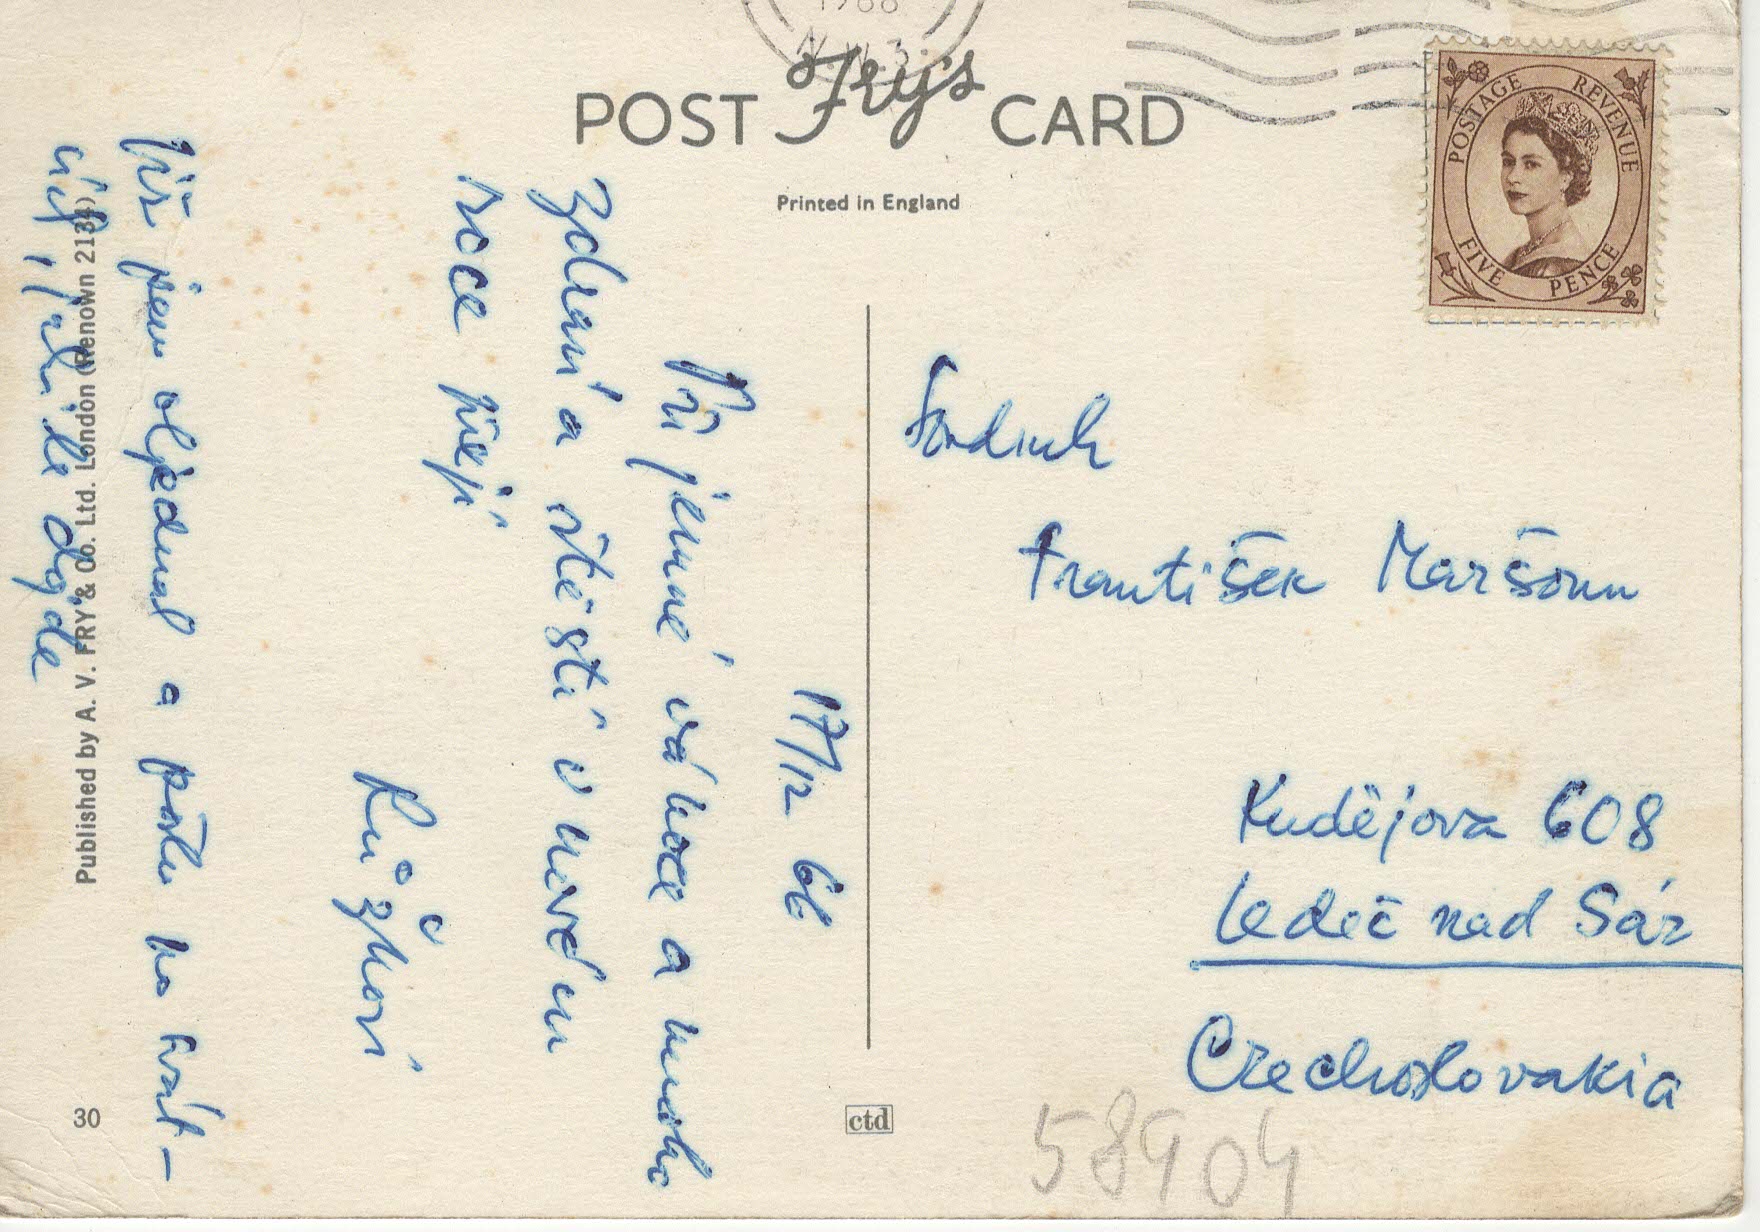 1966
POST Fry's CARD
Printed in England
POSTAGE REVENUE
FIVE PENCE
17/12 66
Příjemné vánoce a mnoho
zdraví a štěstí v novém
roce přejí
Růžkovi
Již jsem objednal a pošlu ho
Published by A. V. FRY & Co. Ltd. London (Renown 2134)
30
ctd
Soudruh
František Maršoun
Kudějova 608
Ledeč nad Sáz
Czechoslovakia
58904